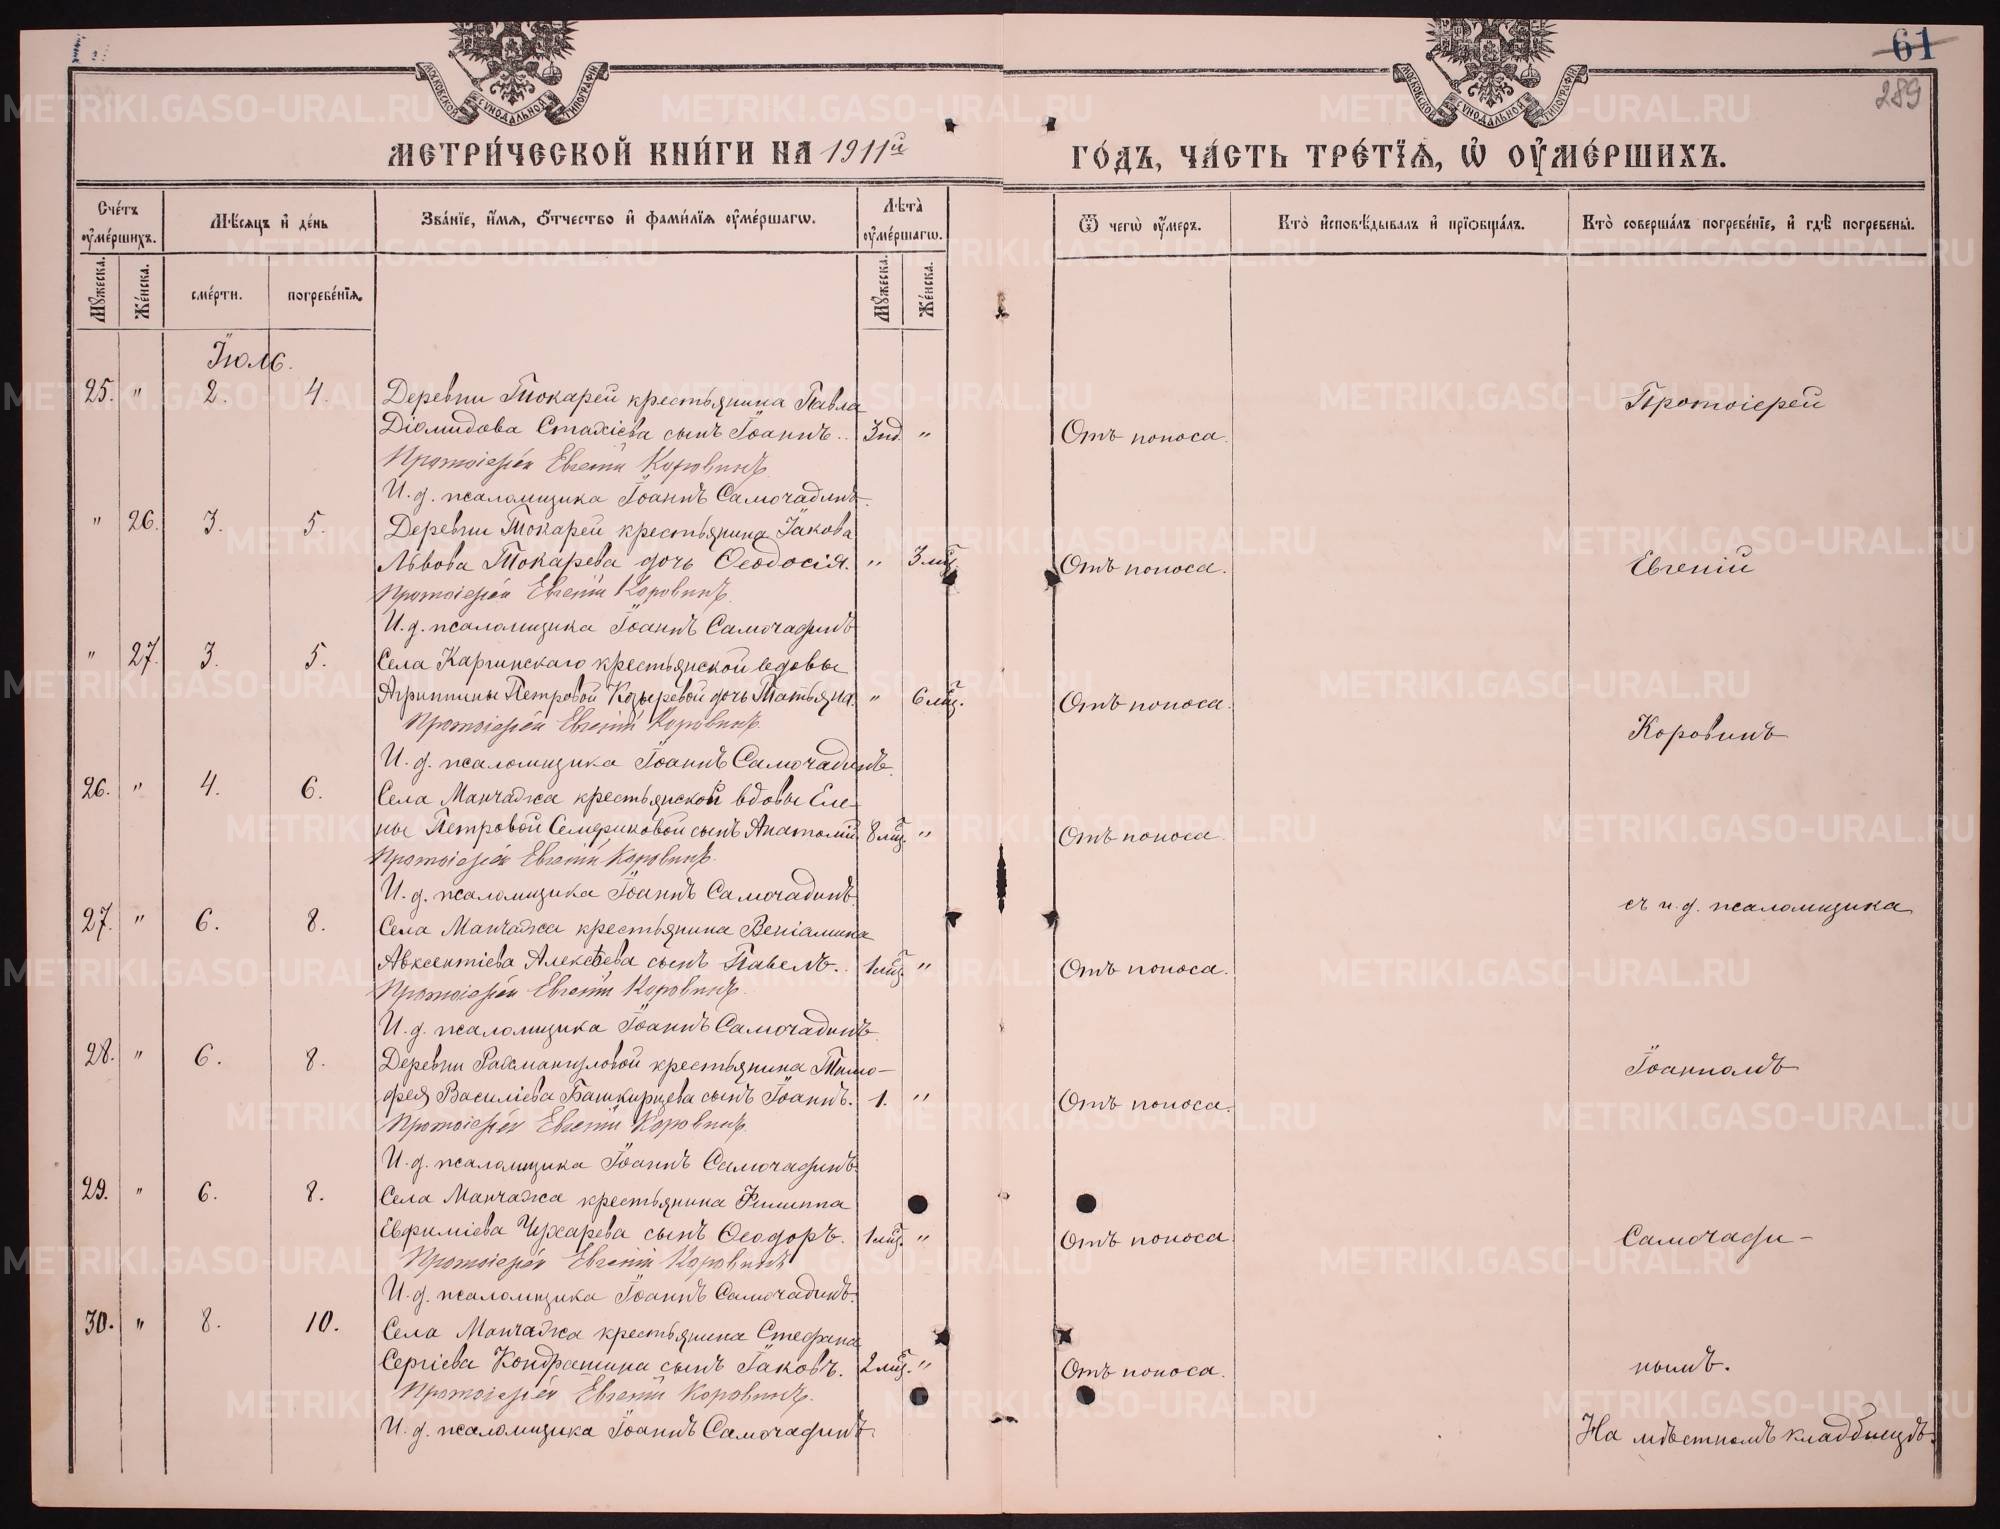 61
289
МОСКОВСКОЙ СѴНОДАЛЬНОЙ ТИПОГРАФІИ
МОСКОВСКОЙ СѴНОДАЛЬНОЙ ТИПОГРАФІИ
МЕТРИ́ЧЕСКОЙ КНИ́ГИ НА 1911й ГО́ДЪ, ЧА́СТЬ ТРЕ́ТЇѦ, Ѡ҆ ОУ҆МЕ́РШИХЪ.
Счетъ оумершихъ. Мѣсяцъ и день Званїе, имя, отчество и фамилїя оумершагѡ. Лѣта оумершагѡ. Ѿ чегѡ оумеръ. Кто исповѣдывалъ и прїобщалъ. Кто совершалъ погребенїе, и гдѣ погребены.
Мужеска. Женска. смерти. погребенїя. Мужеска. Женска.
Іюль.
25. " 2. 4. Деревни Токарей крестьянина Павла Протоіерей
Діомидова Стахіева сынъ Іоаннъ. 3 нд. " Отъ поноса.
Протоіерей Евгеній Коровинъ.
И. д. псаломщика Іоаннъ Самочадинъ
" 26. 3. 5. Деревни Токарей крестьянина Іакова
Львова Токарева дочь Ѳеодосія. " 3 мц. Отъ поноса. Евгеній
Протоіерей Евгеній Коровинъ.
И. д. псаломщика Іоаннъ Самочадинъ
" 27. 3. 5. Села Каргинскаго крестьянской вдовы
Агриппины Петровой Козыревой дочь Татьяна. " 6 мц. Отъ поноса.
Протоіерей Евгеній Коровинъ. Коровинъ
И. д. псаломщика Іоаннъ Самочадинъ.
26. " 4. 6. Села Манчажа крестьянской вдовы Еле-
ны Петровой Семериковой сынъ Анатолій. 8 мц. " Отъ поноса.
Протоіерей Евгеній Коровинъ.
И. д. псаломщика Іоаннъ Самочадинъ. съ и. д. псаломщика
27. " 6. 8. Села Манчажа крестьянина Веніамина
Авксентіева Алексѣева сынъ Павелъ. 1 мц. " Отъ поноса.
Протоіерей Евгеній Коровинъ.
И. д. псаломщика Іоаннъ Самочадинъ.
28. " 6. 8. Деревни Рахмангуловой крестьянина Тимо- Іоанномъ
фея Василіева Башкирцева сынъ Іоаннъ. 1. " Отъ поноса.
Протоіерей Евгеній Коровинъ.
И. д. псаломщика Іоаннъ Самочадинъ.
29. " 6. 8. Села Манчажа крестьянина Филиппа
Евфиміева Чухарева сынъ Ѳеодоръ. 1 мц. " Отъ поноса Самочади-
Протоіерей Евгеній Коровинъ
И. д. псаломщика Іоаннъ Самочадинъ.
30. " 8. 10. Села Манчажа крестьянина Стефана
Сергіева Кондрашина сынъ Іаковъ. 2 мц. " Отъ поноса. нымъ.
Протоіерей Евгеній Коровинъ.
И. д. псаломщика Іоаннъ Самочадинъ. На мѣстномъ кладбищѣ.
METRIKI.GASO-URAL.RU